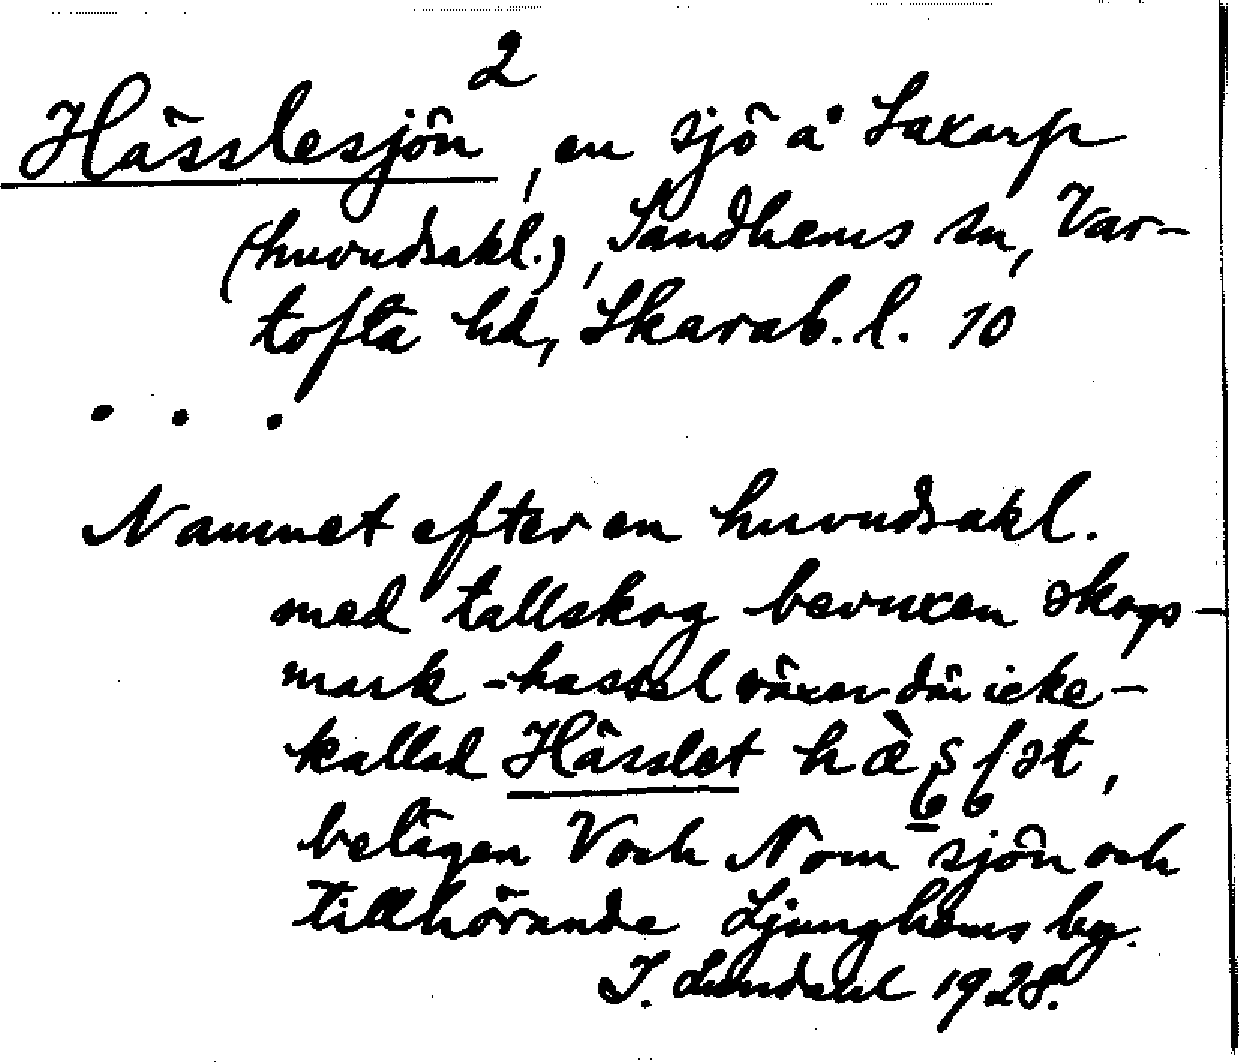 2
Hässlesjön, en sjö å Saxarp
(huvudsakl.), Sandhems sn, Var-
tofta hd, Skarab. l. 10
. . .
Namnet efter en huvudsakl.
med tallskog bevuxen skogs-
mark - hassel växer där icke -
kallad Hässlet
belägen V och N om sjön och
tillhörande Ljunghems by.
I. Lundahl 1928.